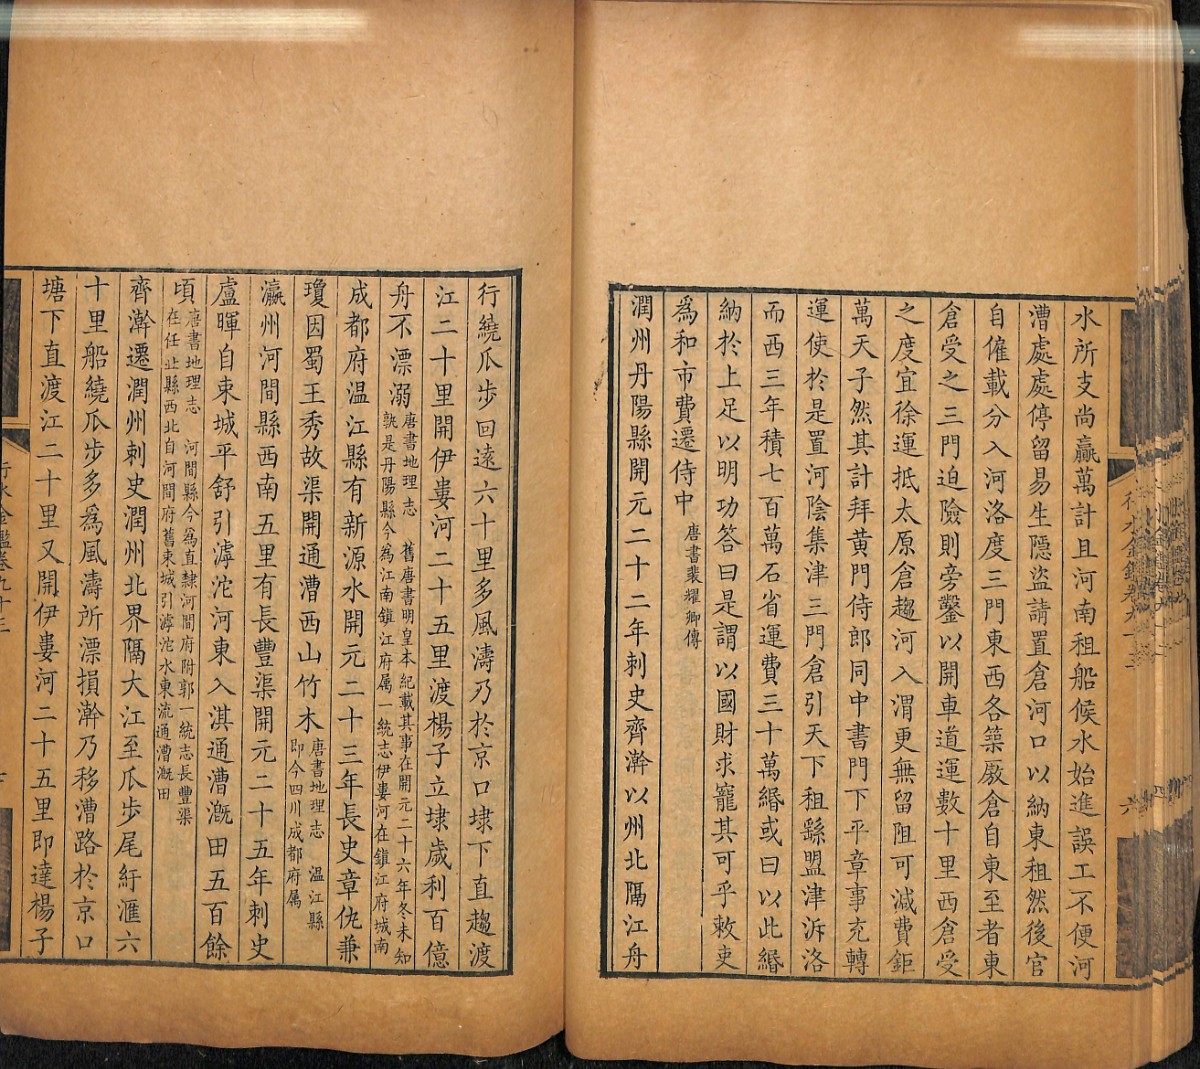 水所支尚贏萬計且河南租船候水始進誤工不便河
漕處處停留易生隱盜請置倉河口以納東租然後官
自僱載分入河洛度三門東西各築廒倉自東至者東
倉受之三門迫險則旁鑿以開車道運數十里西倉受
之度宜徐運抵太原倉趨河入渭更無留阻可減費鉅
萬天子然其計拜黄門侍郎同中書門下平章事充轉
運使於是置河陰集津三門倉引天下租繇盟津泝洛
而西三年積七百萬石省運費三十萬緡或曰以此緡
納於上足以明功答曰是謂以國財求寵其可乎敕吏
為和市費遷侍中唐書裴耀卿傳
潤州丹陽縣開元二十二年刺史齊澣以州北隔江舟
行繞瓜步回遠六十里多風濤乃於京口埭下直趨渡
江二十里開伊婁河二十五里渡楊子立埭歲利百億
舟不漂溺唐書地理志 舊唐書明皇本紀載其事在開元二十六年冬未知
孰是丹陽縣今為江南鎮江府属一統志伊婁河在鎮江府城南
成都府温江縣有新源水開元二十三年長史章仇兼
瓊因蜀王秀故渠開通漕西山竹木唐書地理志 温江縣
即今四川成都府属
瀛州河間縣西南五里有長豐渠開元二十五年刺史
盧暉自束城平舒引滹沱河東入淇通漕溉田五百餘
頃唐書地理志 河間縣今為直隸河間府附郭一統志長豐渠
在任丘縣西北自河間府舊束城引滹沱水東流通漕溉田
齊澣遷潤州刺史潤州北界隔大江至瓜步尾紆滙六
十里船繞瓜步多為風濤所漂損澣乃移漕路於京口
塘下直渡江二十里又開伊婁河二十五里即達楊子
行水金鑑卷九十三